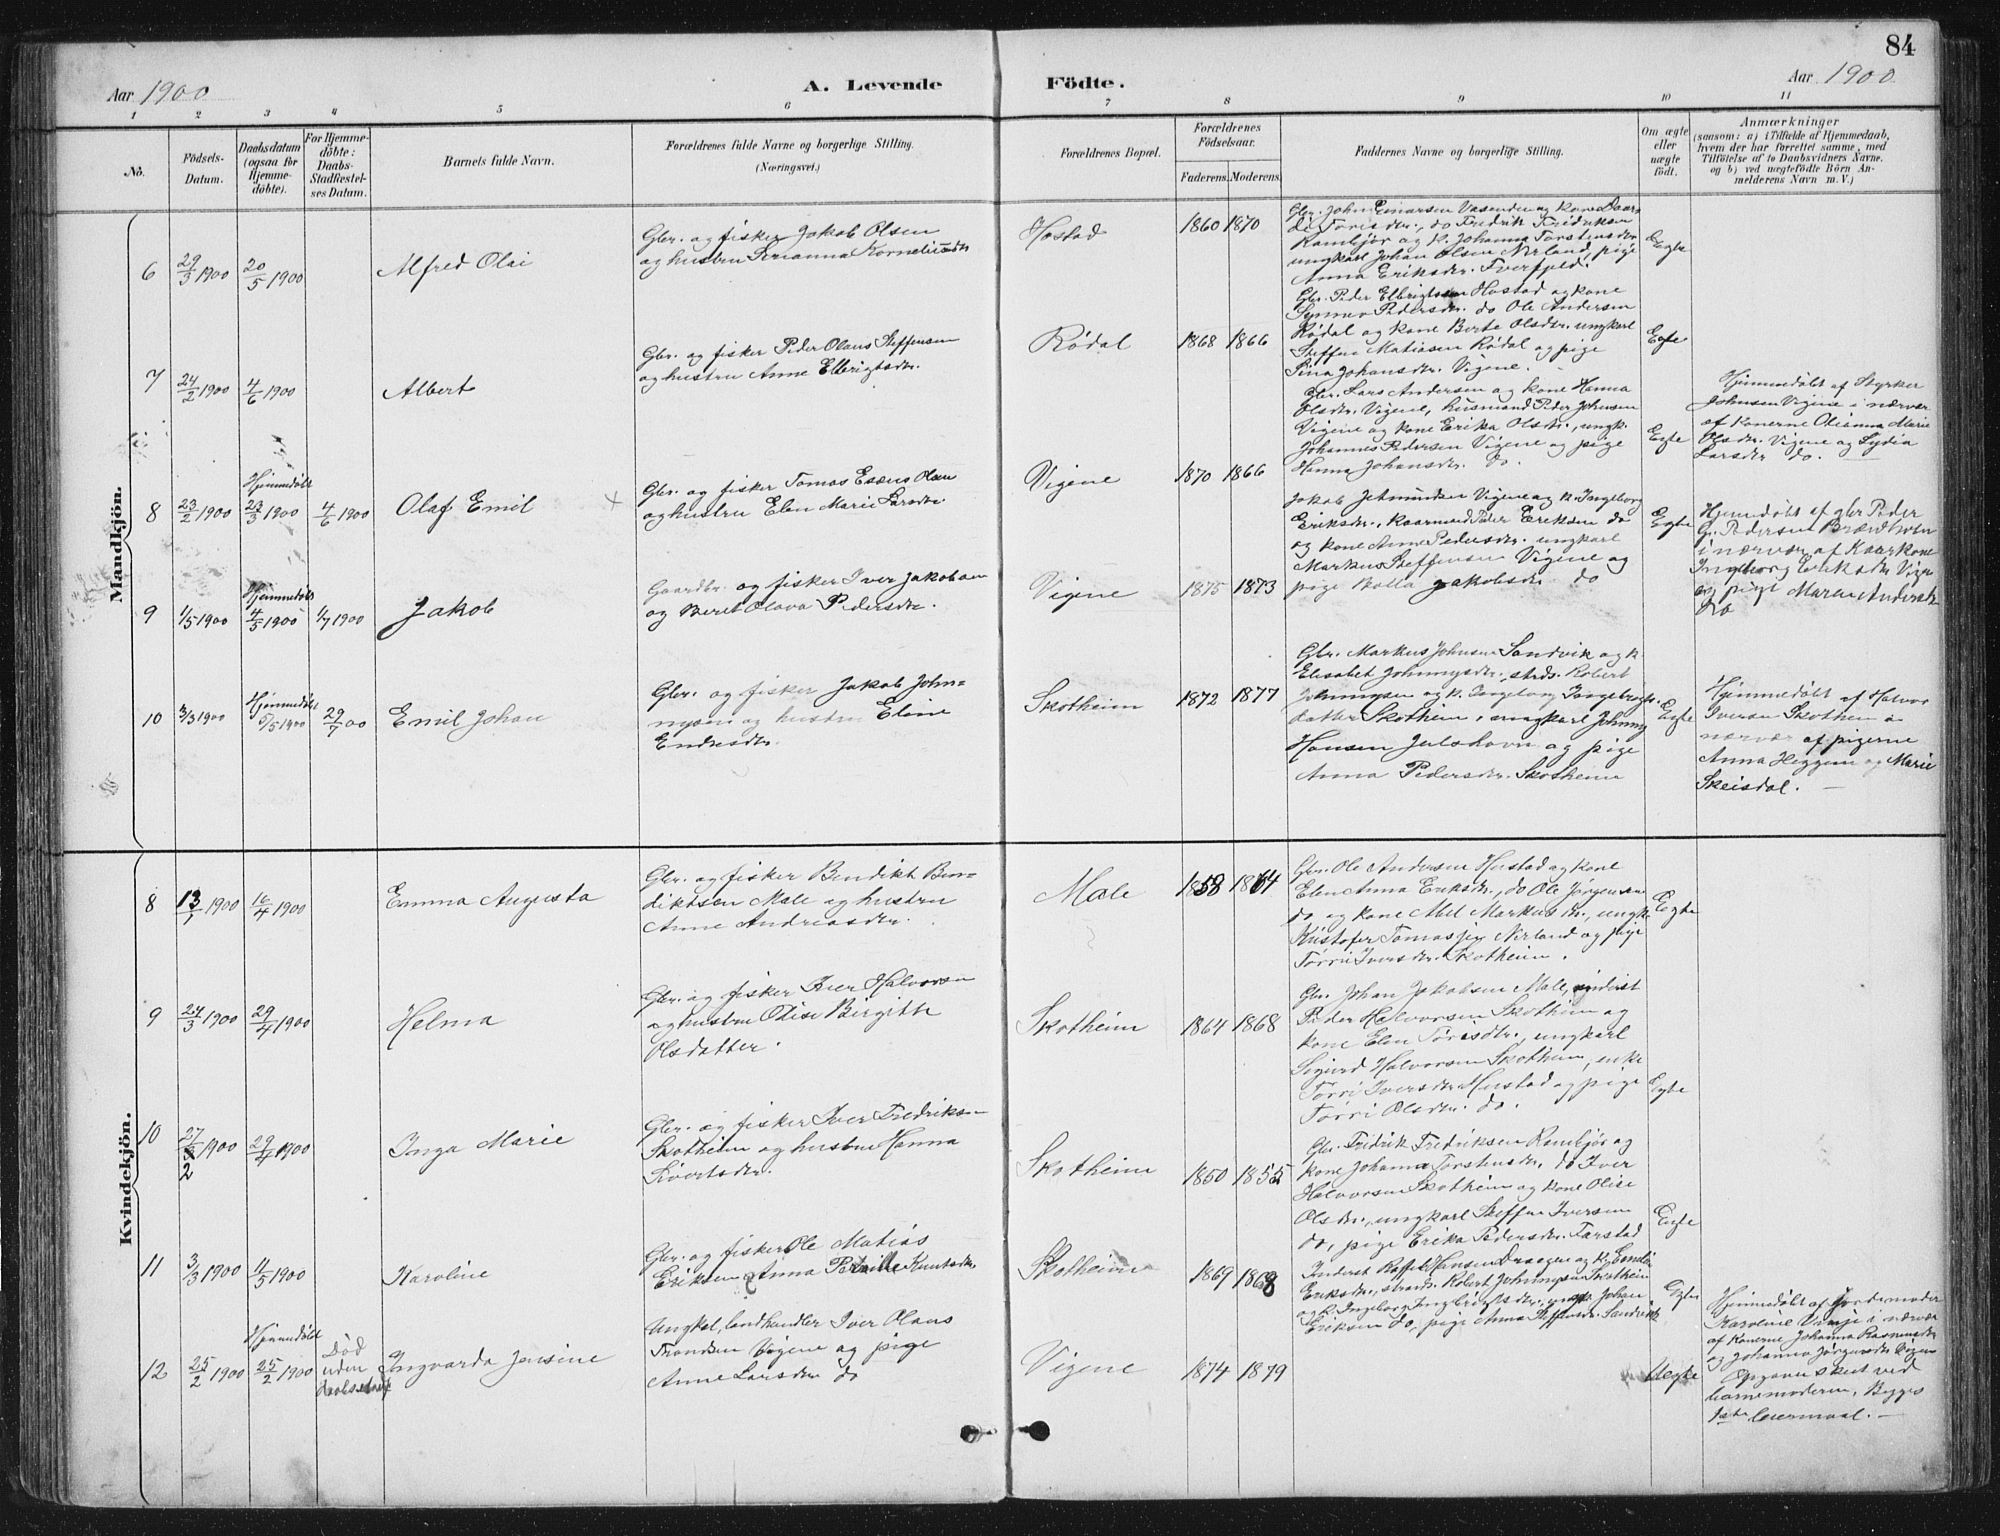 84
Aar 1900
A. Levende
Födte.
Aar 1900
1 2 3 4 5 6 7 8 9 10 11
No.
Födsels-
Datum.
Daabsdatum
(ogsaa for
Hjemme-
döbte).
For Hjemme-
döbte:
Daabs-
Stadfæstel-
ses Datum.
Barnets fulde Navn.
Forældrenes fulde Navne og borgerlige Stilling.
(Næringsvei.)
Forældrenes Bopæl.
Forældrenes
Födselsaar.
Faderens.
Moderens.
Faddernes Navne og borgerlige Stilling.
Om ægte
eller
uægte
födt.
Anmærkninger
(saasom: a) i Tilfælde af Hjemmedaab,
hvem der har forrettet samme, med
Tilföielse af to Daabsvidners Navne.
og b) ved uægtefödte Börn An-
melderens Navn m. V.)
Mandkjön.
6
29/3 1900
20/5 1900
Alfred Olai
Gbr. og fisker Jakob Olsen
og hustru
Hostad
1860 1870
ungkarl Johan Olsen Nerland, pige
Anna Eriksdtr.
Egte
7
24/2 1900
4/6 1900
Albert
Gbr. og fisker Peder Olaus Steffensen
og hustru Anne Elbrigtsdtr.
Rödal
1868 1866
Gbr. Peder Elbrigtsen Hostad og kone
Synnev Pedersdtr. do Ole Andersen
Rödal og kone Berte Olsdtr. ungkarl
Steffen Matiasen Rödal og pige
Sina Johansdtr. Vigene.
Egte
8
23/2 1900
Hjemmedöbt
23/3 1900
4/6 1900
Olaf Emil
Gbr. og fisker Tomas Esæus Olsen
og hustru Elen Marie Larsdtr.
Vigene
1870 1866
Gbr. Lars Andersen og kone Hanna
Olsdtr. Vigene, husmand Peder Johnsen
Vigene og kone Erika Olsdtr., ungk.
Johannes Pedersen Vigene og pige
Hanna Johansdtr. do.
Egte
Hjemmedöbt af Styrker
Johnsen Vigene i nærvær
af konerne Olianna Marie
Olsdtr. Vigene og Lydia
Larsdtr do.
9
1/5 1900
Hjemmedöbt
4/5 1900
1/7 1900
Jakob
Gaardbr. og fisker Iver Jakobsen
og Beret Olava Pedersdtr.
Vigene
1875 1873
Jakob Vigene og k. Ingeborg
Eriksdtr., kaarmand Peder Eriksen do
og kone Anne Pedersdtr. ungkarl
Markus Steffensen Vigene og
pige Jakobsdtr do
Egte
Hjemmedöbt af gbr Peder
G. Pedersen
i nærvær af Kaarkone
Ingeborg Eriksdtr Vige
og pige Maren Andersdtr
do
10
3/3 1900
Hjemmedöbt
5/5 1900
29/7 00
Emil Johan
Gbr. og fisker Jakob John-
nysen og hustru Eline
Endresdtr.
Skotheim
1872 1877
Gbr. Markus Johnsen Sandvik og k.
Elisabet Johnnysdtr., strds. Robert
Johnnysen og k. Ingeborg Ingebrigts-
datter Skotheim, ungkarl Johnny
Hansen Julshavn og pige
Anna Pedersdtr. Skotheim
Egte
Hjemmedöbt af Halvor
Iversen Skotheim i
nærvær af pigerne
Anna Heggem og Marie
Skeisdal.
Kvindekjön.
8
13/1 1900
16/4 1900
Emma Augusta
Gbr. og fisker Bendikt Ben-
diktsen Male og hustru
Anne Andreasdtr.
Male
1858 1864
Gbr. Ole Andersen Hustad og kone
Elen Anna Eriksdtr., do Ole Jörgensen
do, og kone Abel Markusdtr., ungk.
Kristofer Nerland og pige
Torri Iversdtr. Skotheim.
Egte
9
24/3 1900
29/4 1900
Helma
Gbr. og fisker Iver Halvorsen
og hustru Olise Birgitte
Olsdatter.
Skotheim
1864 1868
Gbr. Johan Jakobsen Male, inderst
Peder Halvorsen Skotheim og
kone Elen Torisdtr., ungkarl
Sigurd Halvorsen Skotheim, enke
Torri Iversdtr Hustad og pige
Torri Olsdtr. do.
Egte
10
27/2 1900
29/4 1900
Inga Marie
Gbr. og fisker Iver Fredriksen
Skotheim og hustru Hanna
Sivertsdtr.
Skotheim
1850 1855
Gbr. Fridrik Fredriksen Rambjör og
kone Johanna Torstensdtr. do Iver
Halvorsen Skotheim og kone Olise
Olsdtr., ungkarl Steffen Iversen
do, pige Erika Pedersdtr. Farstad
Egte
11
3/3 1900
11/5 1900
Karoline
Gbr. og fisker Ole Matias
Eriksen Anna Pernille Knutsdtr.
Skotheim
1869 1868
Inderst Hansen og k. Emelie
Eriksdtr., strands. Robert Johnnysen Skotheim
og k. Ingeborg Ingebrigtsdtr, ungk. Johan
Eriksen do, pige Anna Steffensdtr. Sandvik
Egte
12
25/2 1900
Hjemmedöbt
25/2 1900
Död
uden
daabsstadf
Ingvarda Jensine
Ungkel, landhandler Iver Olaus
Trondsen Vigene og pige
Anne Larsdtr do
Vigene
1874 1879
Uegte
Hjemmedöbt af Jordemoder
Karoline i nærvær
af konerne Johanna Rasmusdtr
og Johanna Jörgensdtr Vigene
Opgaver skeet ved
barnemoderen. Begges
1ste leiermaal.